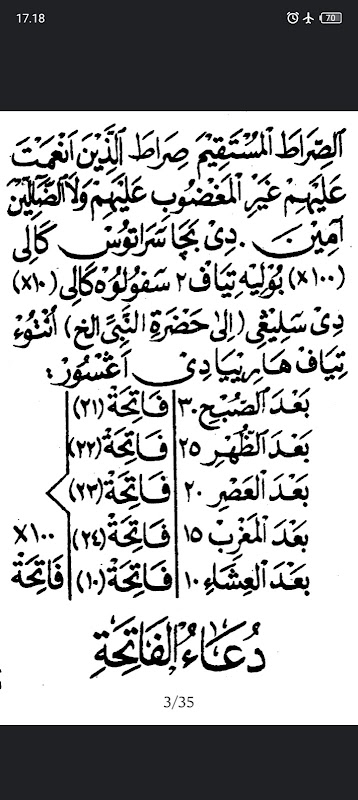 17.18
70
الصِّرَاطَ الْمُسْتَقِيْمَ صِرَاطَ الَّذِيْنَ اَنْعَمْتَ
عَلَيْهِمْ غَيْرِ الْمَغْضُوبِ عَلَيْهِمْ وَلَا الضَّالِّيْنَ
آمِيْنَ . دِيْ بَچَا سَرَاتُوسْ كَالِى
(١٠٠×) بُوْلِيْه تِيَافْ٢ سَفُولُوْه كَالِى (١٠×)
دِى سَلِيڠِى (اِلىٰ حَضْرَةِ النَّبِىِّ الخ) اُنْتُوْءْ
تِيَافْ هَارِيْيَا دِىْ اَڠْسُوْرْ :
بَعْدَ الصُّبْحِ ٣٠ فَاتِحَةْ (٢١)
بَعْدَ الظُّهْرِ ٢٥ فَاتِحَةْ (٢٢)
بَعْدَ الْعَصْرِ ٢٠ فَاتِحَةْ (٢٣)
بَعْدَ الْمَغْرِبْ ١٥ فَاتِحَةْ (٢٤) ١٠٠×
بَعْدَ الْعِشَاءِ ١٠ فَاتِحَةْ (١٠) فَاتِحَةْ
دُعَاءُ الْفَاتِحَةِ
3/35